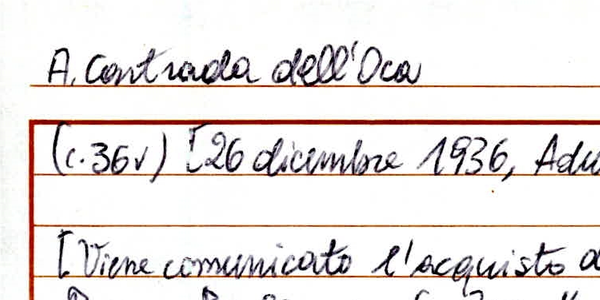 A. Contrada dell'Oca
(c. 36v) [26 dicembre 1936,
[Viene comunicato l'acquisto